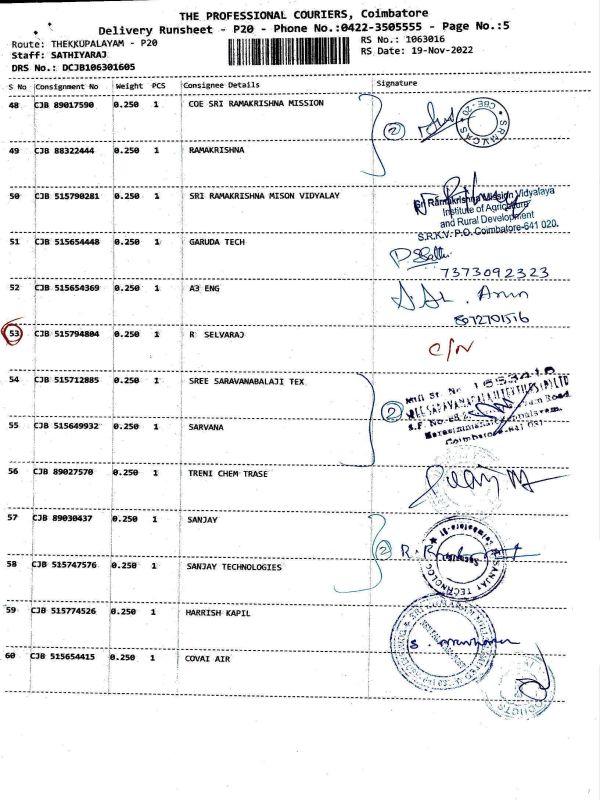 THE PROFESSIONAL COURIERS, Coimbatore
Delivery Runsheet - P20 - Phone No.:0422-3505555 - Page No.:5
Route: THEKKUPALAYAM - P20
RS No.: 1063016
Staff: SATHIYARAJ
RS Date: 19-Nov-2022
DRS No.: DCJB106301605
S No Consignment No Weight PCS Consignee Details Signature
48 CJB 89017590 0.250 1 COE SRI RAMAKRISHNA MISSION
2
S.R.M.V.C.A.S
CBE-20
49 CJB 88322444 0.250 1 RAMAKRISHNA
50 CJB 515790281 0.250 1 SRI RAMAKRISHNA MISON VIDYALAY
Sri Ramakrishna Mission Vidyalaya
Institute of Agriculture
and Rural Development
S.R.K.V. P.O. Coimbatore-641 020.
51 CJB 515654448 0.250 1 GARUDA TECH
7373092323
52 CJB 515654369 0.250 1 A3 ENG
Arun
8072701516
53 CJB 515794804 0.250 1 R SELVARAJ
C/N
54 CJB 515712885 0.250 1 SREE SARAVANABALAJI TEX
2
55 CJB 515649932 0.250 1 SARVANA
56 CJB 89027570 0.250 1 TRENI CHEM TRASE
57 CJB 89030437 0.250 1 SANJAY
2 R.
SANJAY TECHNOLOG
58 CJB 515747576 0.250 1 SANJAY TECHNOLOGIES
59 CJB 515774526 0.250 1 HARRISH KAPIL
60 CJB 515654415 0.250 1 COVAI AIR